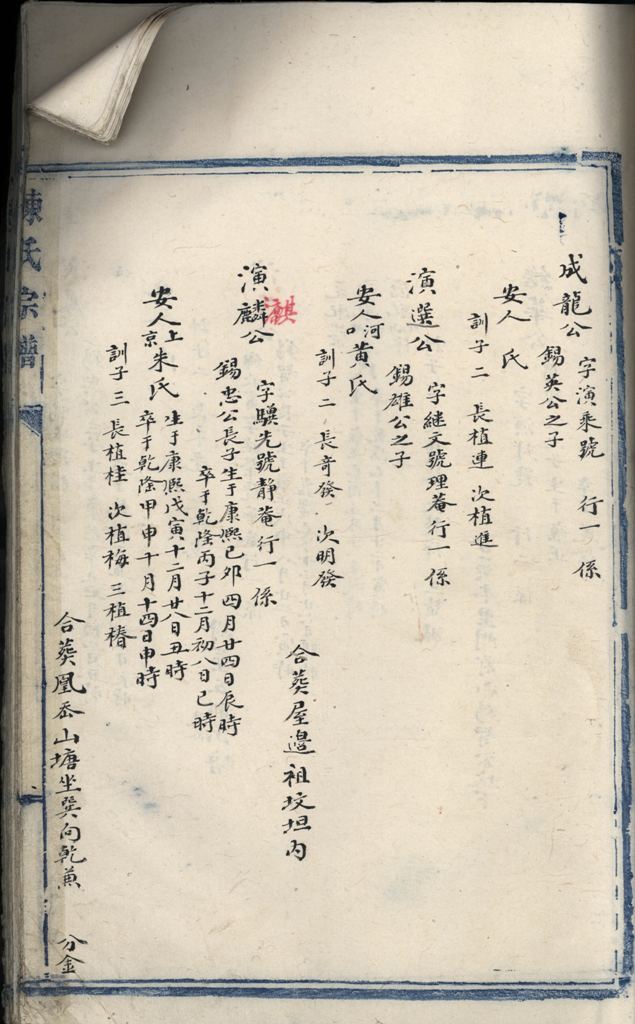 成龍公 字演乘號 行一係
錫英公之子
安人 氏
訓子二 長植連 次植進
演選公 字継文號理菴行一係
錫雄公之子
安人河口黄氏
訓子二 長奇發 次明發
合葵屋邊祖坟坦内
麒
演麟公 字驥先號靜菴行一係
錫忠公長子生于康熈己夘四月廿四日辰時
卒于乾隆丙子十二月初八日巳時
安人上京朱氏 生于康熈戊寅十二月廿八日丑時
卒于乾隆甲申十月十四日申時
訓子三長植桂 次植梅 三植椿
合葵凰岙山塘坐巽向乾兼 分金
陳氏宗譜